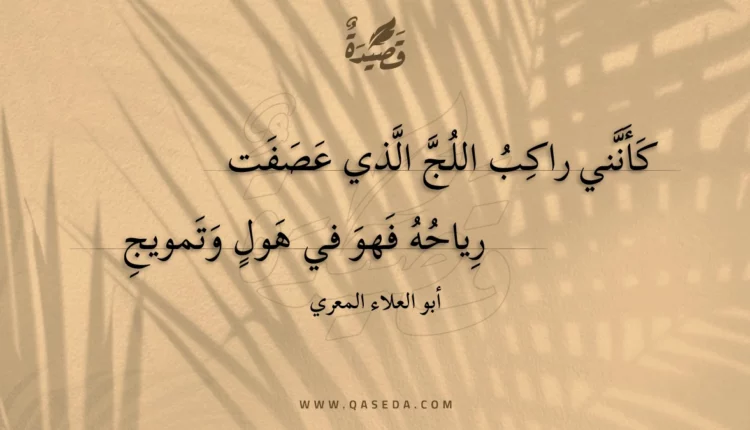 قَصِيْدَةٌ
كَأَنَّني راكِبُ اللُجَّ الَّذي عَصَفَت
رِياحُهُ فَهوَ في هَولٍ وَتَمويجِ
أبو العلاء المعري
WWW.QASEDA.COM